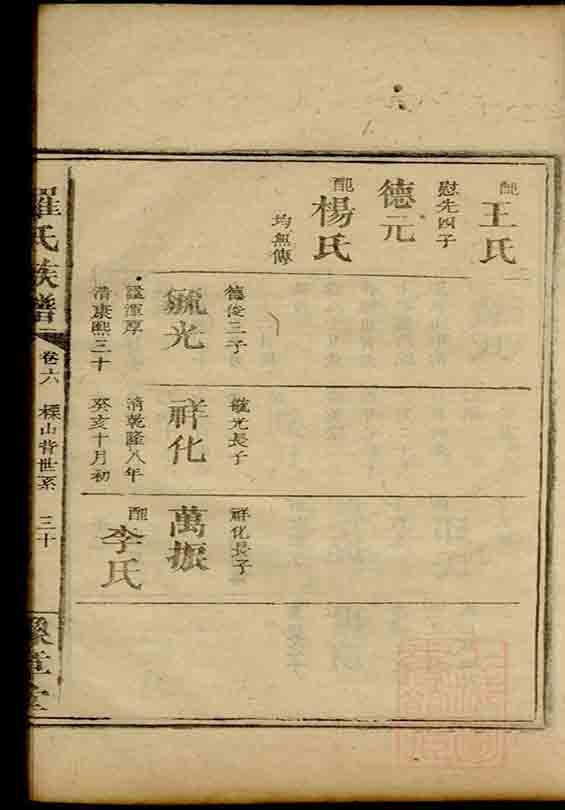 配王氏
慰先四子
德元
配楊氏
均無傳
德俊三子
毓光
諡渾厚
清康熙三十
毓光長子
祥化
清乾隆八年
癸亥十月初
祥化長子
萬振
配李氏
羅氏族譜
卷六
標山背世系
三十